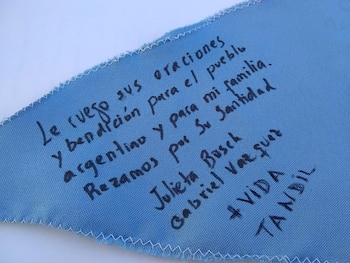 Le ruego sus oraciones
y bendición para el pueblo
argentino y para mi familia.
Rezamos por Su Santidad
Julieta Bosch
Gabriel Vazquez
+ VIDA
TANDIL